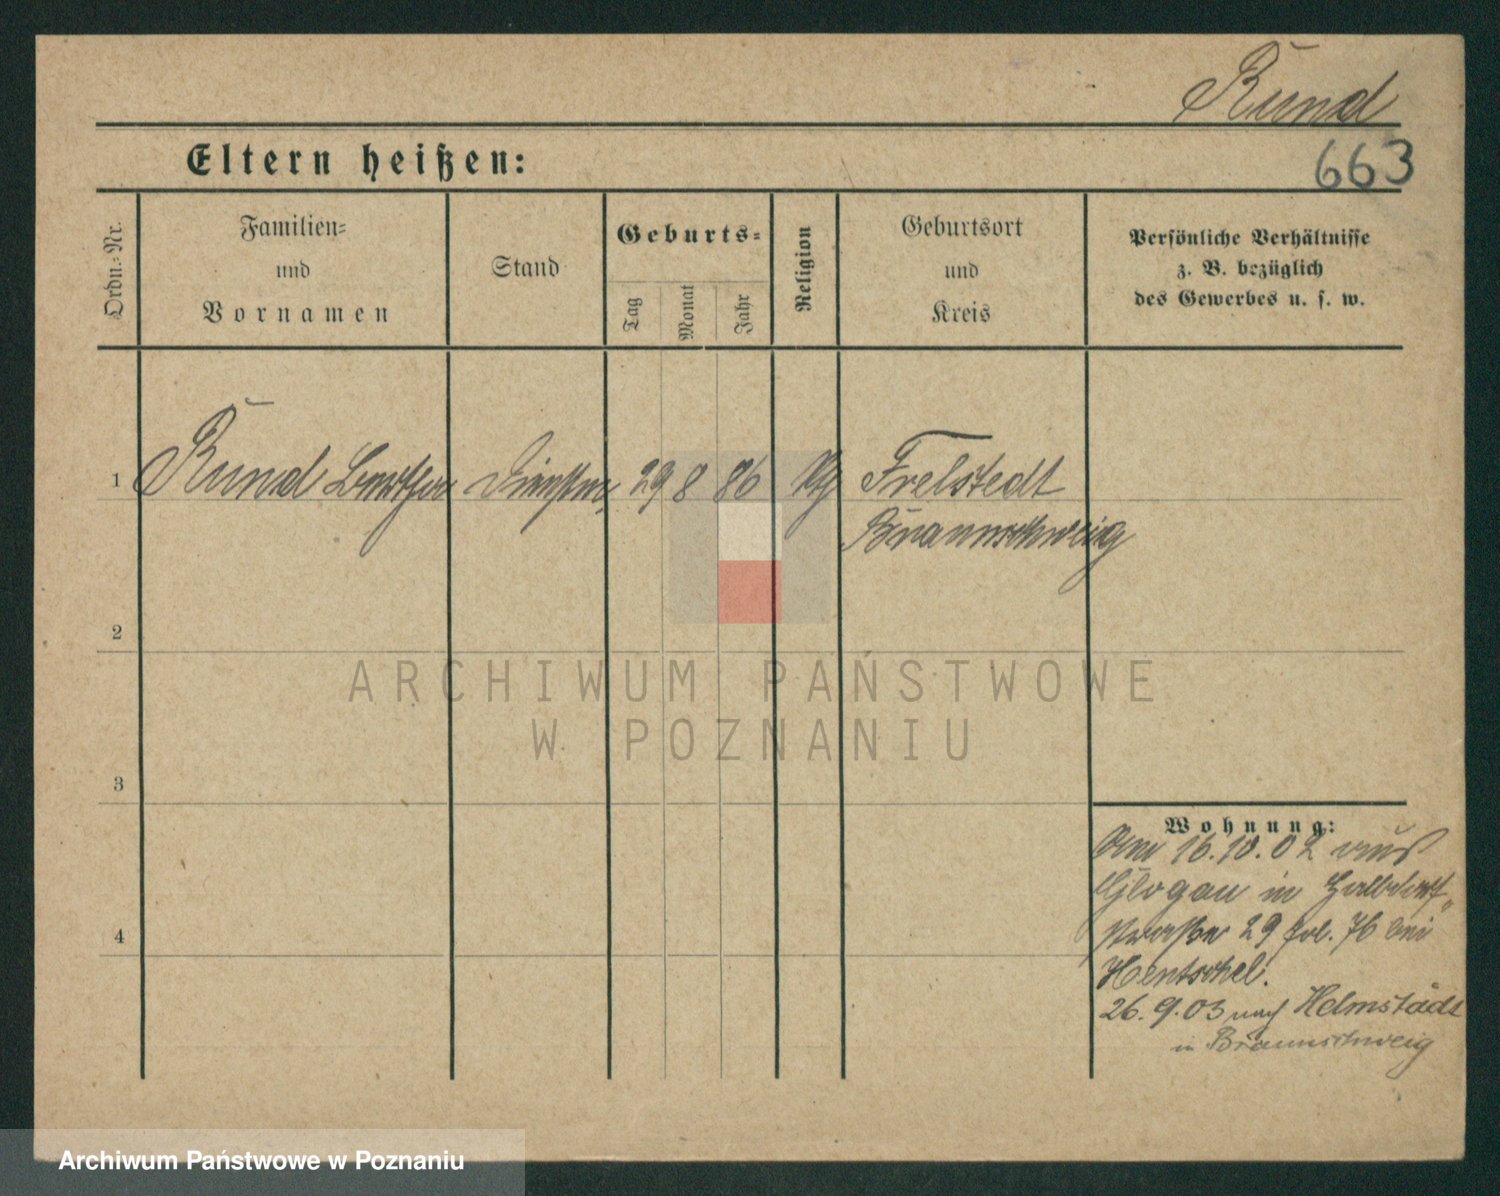 Rund
663
Eltern heißen:
Ordn.-Nr.
Familien-
und
Vornamen
Stand
Geburts-
Tag
Monat
Jahr
Religion
Geburtsort
und
Kreis
Persönliche Verhältnisse
z. B. bezüglich
des Gewerbes u. s. w.
1 Rund 29 8 86 Frelstedt
Braunschweig
2
3
4
ARCHIWUM PAŃSTWOWE
W POZNANIU
Wohnung:
Am 16.10.02 aus
Glogau in
straße 29 bei
Hentschel.
26.9.03 nach Helmstädt
in Braunschweig
Archiwum Państwowe w Poznaniu